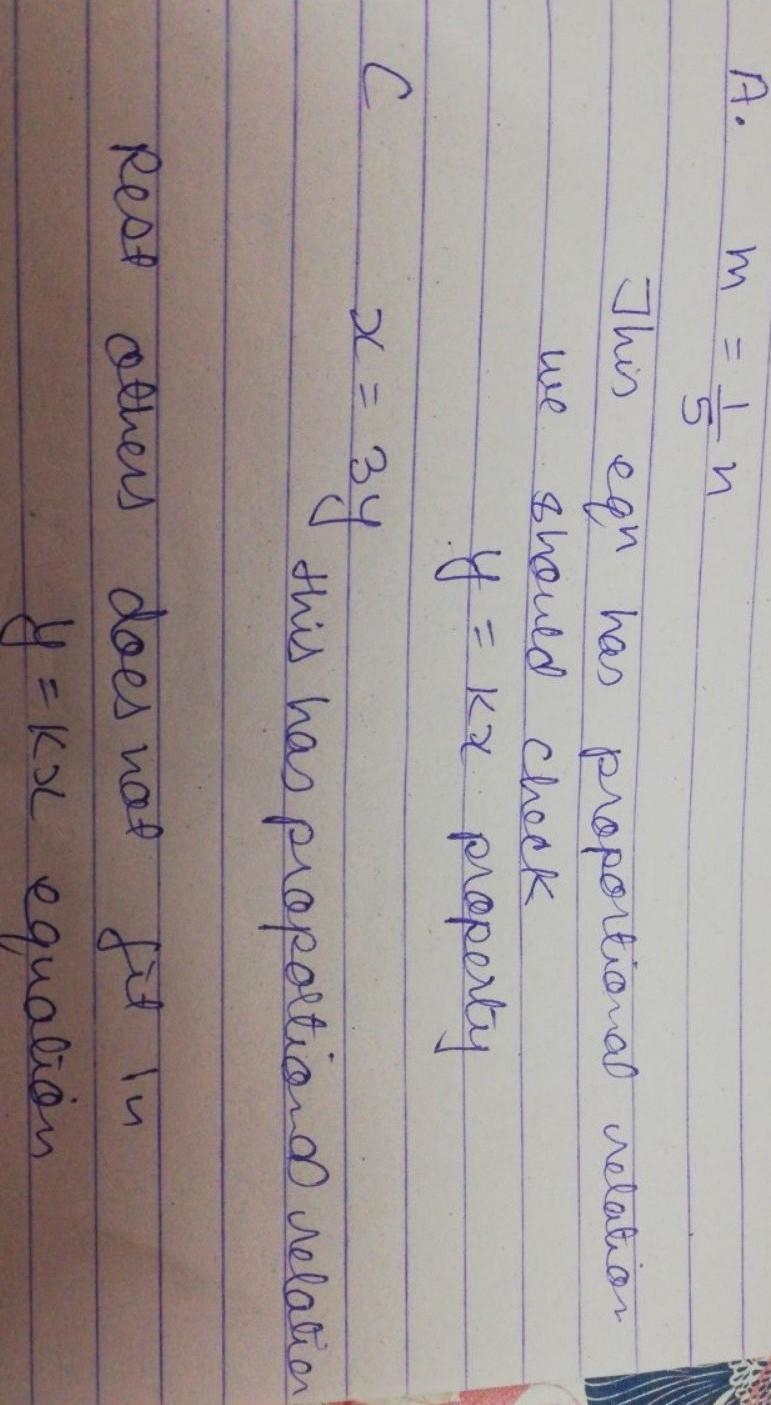 A. m = 1/5 n
This eqn has proportional relation
we should check
y = kx property
C x = 3y
this has proportional relation
Rest others does not fit in
y = kx equation